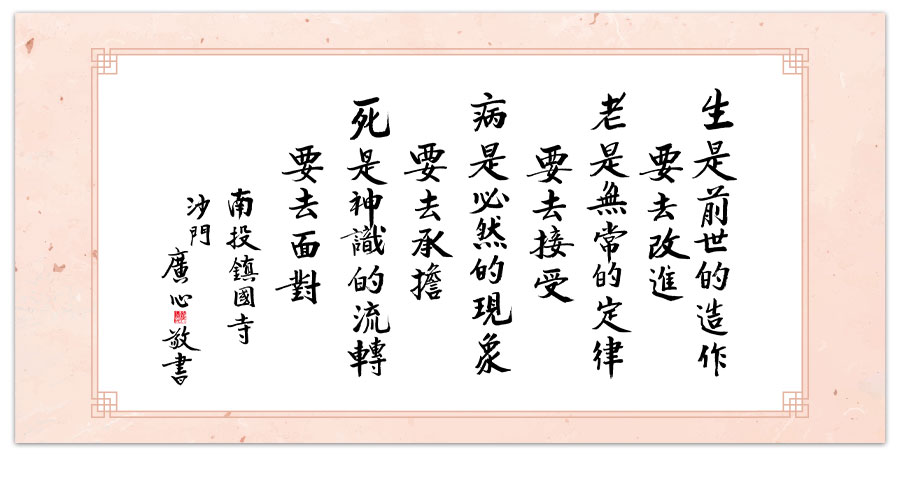 生是前世的造作
要去改進
老是無常的定律
要去接受
病是必然的現象
要去承擔
死是神識的流轉
要去面對
南投鎮國寺
沙門
廣心敬書